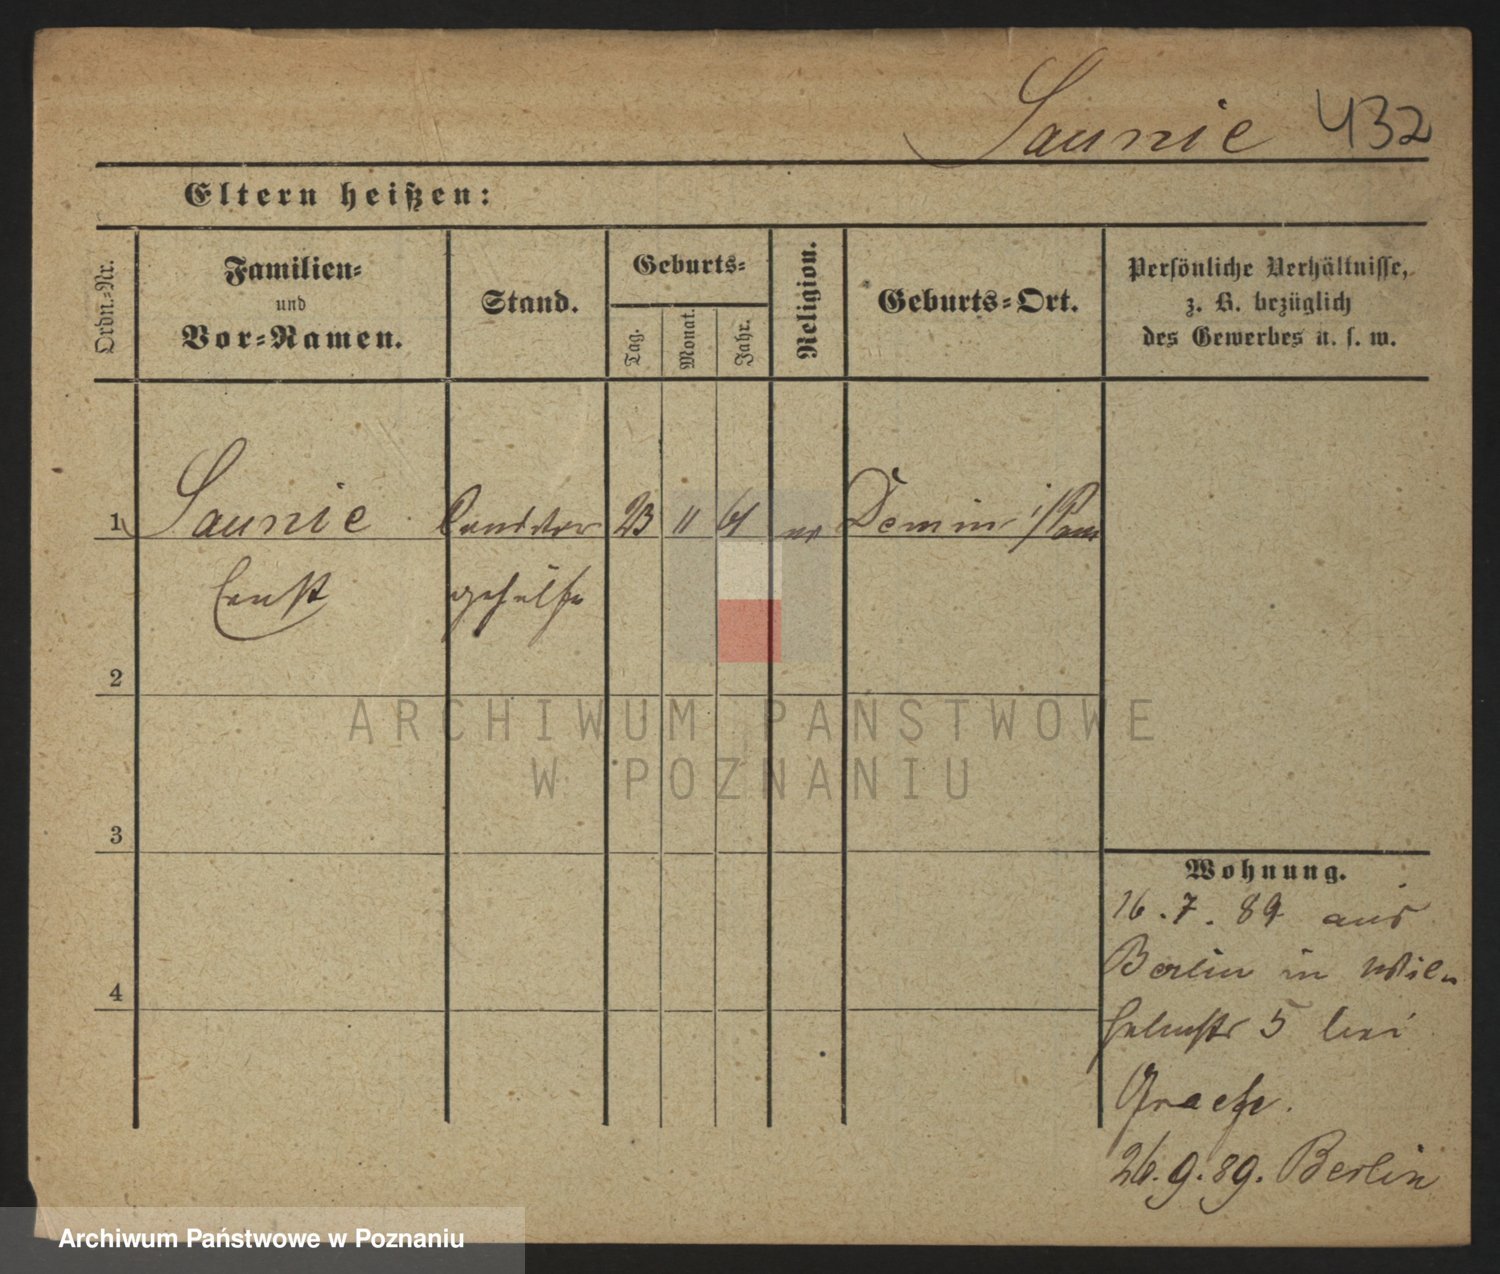 Saunie 432
Eltern heißen:
Ordn.-Nr.
Familien-
und
Vor-Namen.
Stand.
Geburts-
Tag.
Monat.
Jahr.
Religion.
Geburts-Ort.
Persönliche Verhältnisse,
z. B. bezüglich
des Gewerbes u. s. w.
1 Saunie Conditor 23 11 61 ev Demmin i/Pom
Ernst gehülfe
2
3
4
Wohnung.
16.7.89 aus
Berlin in Wil-
helmstr 5 bei
26.9.89. Berlin
ARCHIWUM PAŃSTWOWE
W POZNANIU
Archiwum Państwowe w Poznaniu